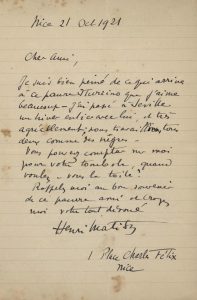 Nice 21 Oct 1921
Cher ami,
Je suis bien peiné de ce qui arrive
à ce pauvre Iturrino que j'aime
beaucoup - j'ai passé à Séville
un hiver entier avec lui, et très
agréablement, nous travaillions tous
deux comme des nègres.
Vous pouvez compter sur moi
pour votre tombola, quand
voulez-vous la toile?
Rappelez moi au bon souvenir
de ce pauvre ami et croyez
moi votre tout dévoué
Henri Matisse
1 Place Charles Félix
Nice